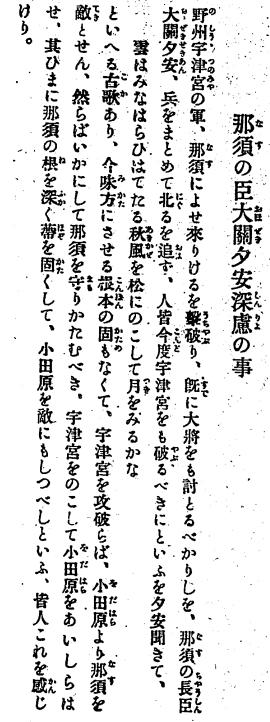 那須の臣大關夕安深慮の事
野州宇津宮の軍、那須によせ來りけるを擊破り、既に大將をも討とるべかりしを、那須の長臣
大關夕安、兵をまとめて北るを追ず、人皆今度宇津宮をも破るべきにといふを夕安聞きて、
雲はみなはらひはてたる秋風を松にのこして月をみるかな
といへる古歌あり、今味方にさせる根本の固もなくて、宇津宮を攻破らば、小田原より那須を
敵とせん、然らばいかにして那須を守りかたむべき、宇津宮をのこして小田原をあいしらは
せ、其ひまに那須の根を深く蔕を固くして、小田原を敵にもしつべしといふ、皆人これを感じ
けり。